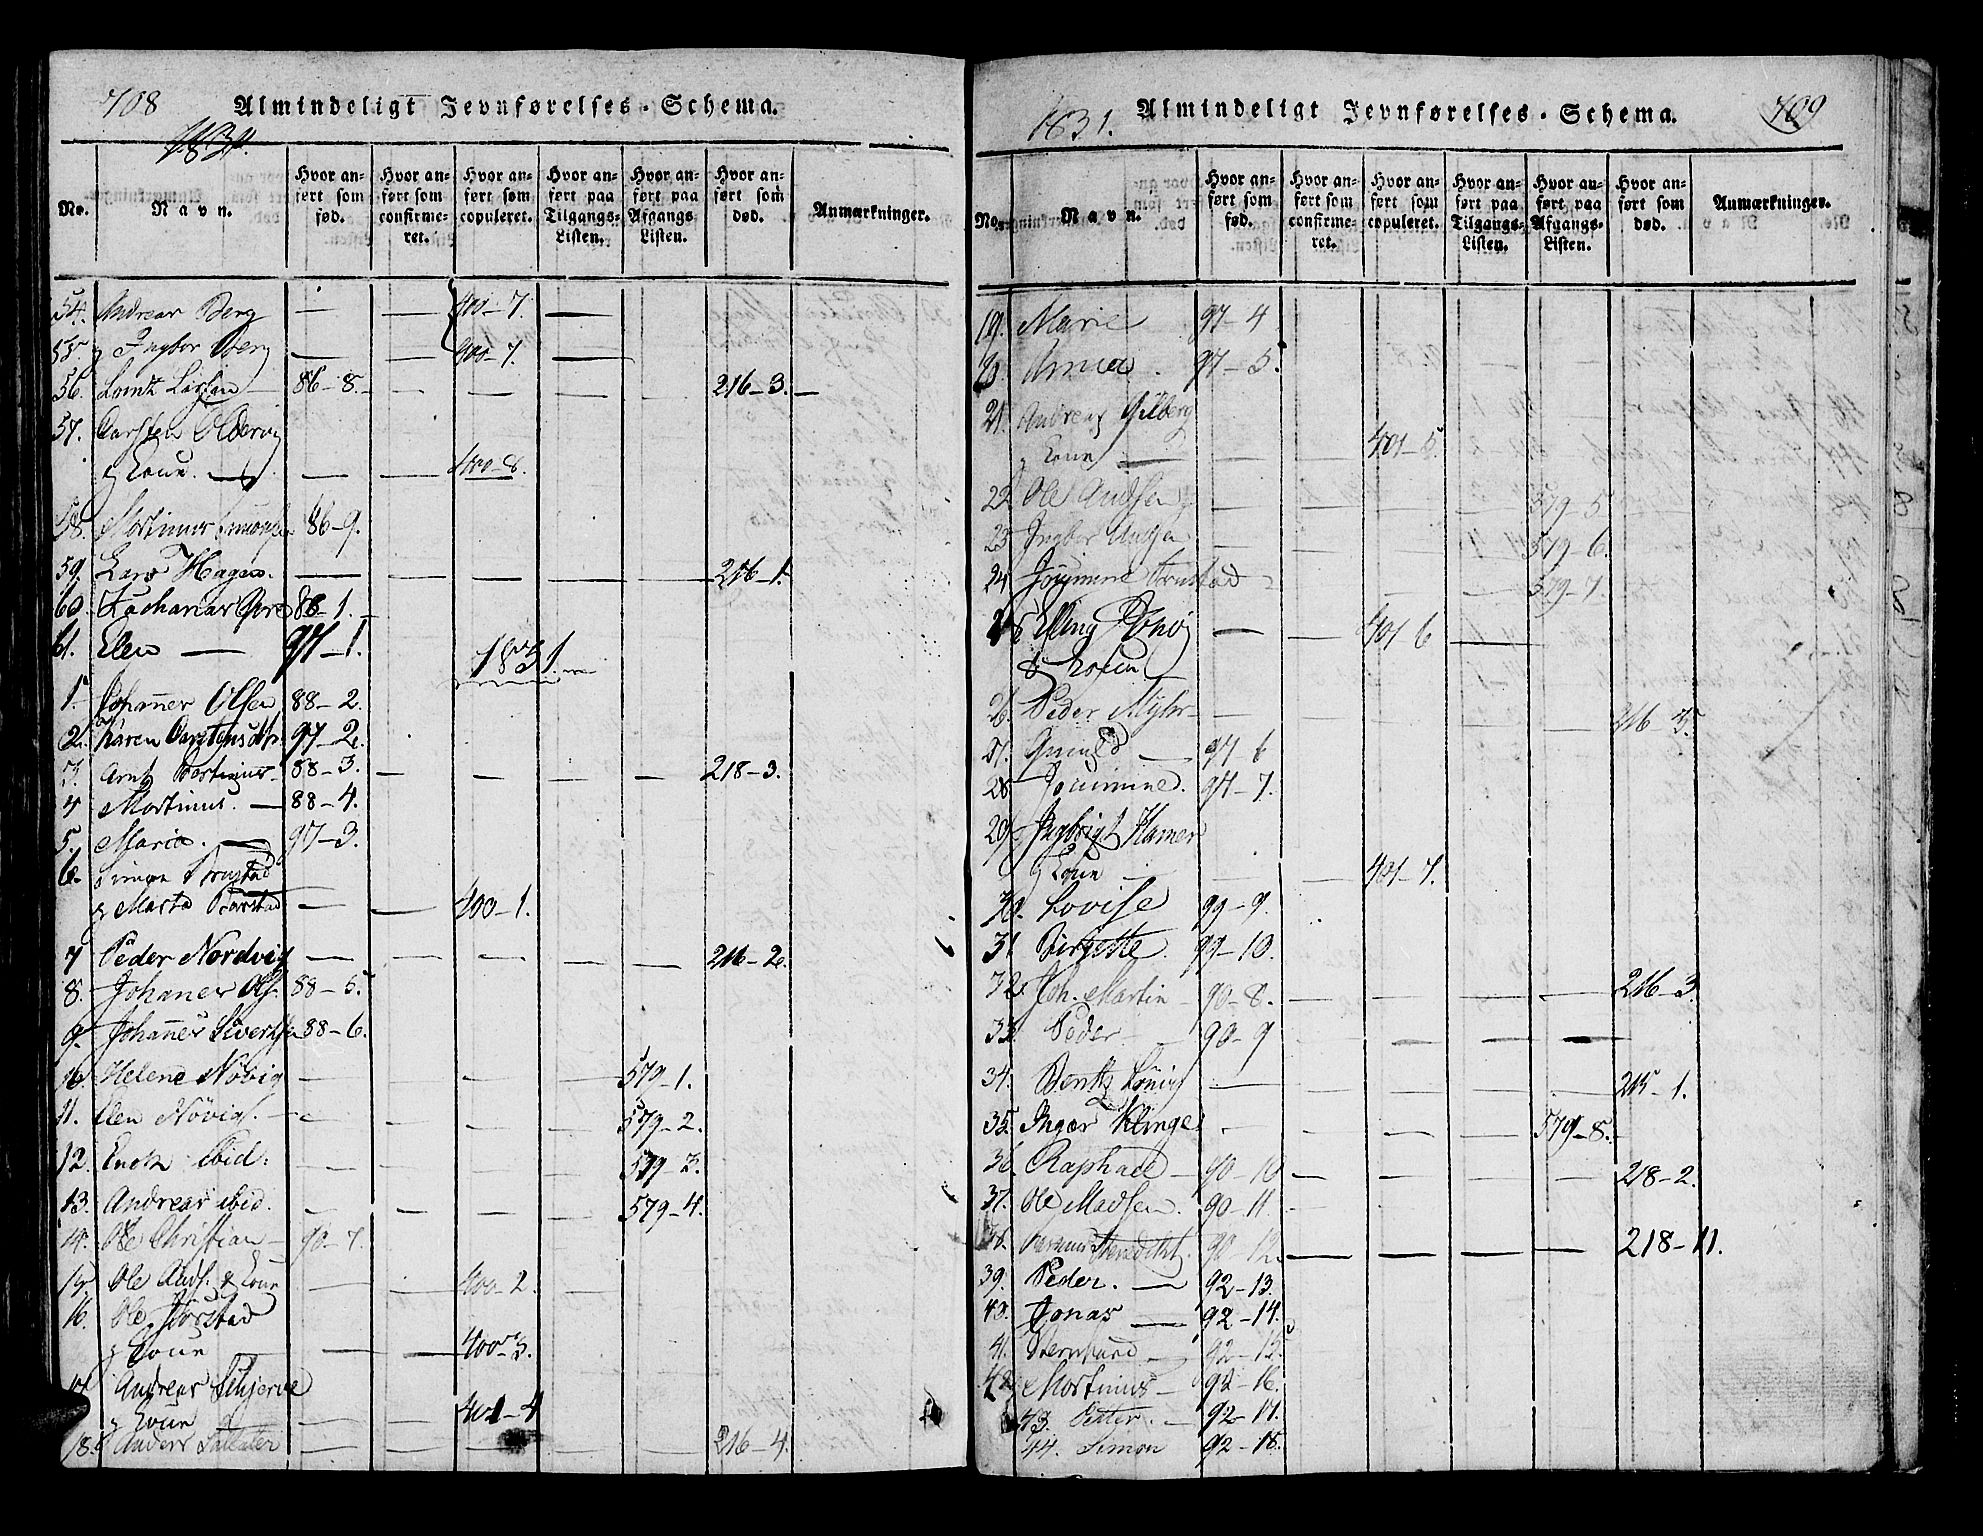 708 Almindeligt Jevnførelses-Schema.
No. Navn. Hvor anført som fød. Hvor anført som confirmeret. Hvor anført som copuleret. Hvor anført paa Tilgangs-Listen. Hvor anført paa Afgangs Listen. Hvor anført som død. Anmærkninger.
54. Andreas Berg — — 400-7. —
55. & Ingbor Berg — — 400-7. —
56. 86-8. — — — — 216-3. —
57. Carsten
& Kone. — — — 400-8.
58. Mortinus 86-9.
59. Lars Hagen. — — — — — 216-1.
60. Zacharias 88-1.
61. Elen — 97-1.
1831.
1. Johannes Olsen 88-2.
2. Karen Carstensdtr. 97-2.
3. Arnt 88-3. — — — — 218-3.
4 Mortinus. — 88-4.
5. Maria. — 97-3.
6. Simon
& Marta — — 400-1.
7 Peder Nordvig — — — — — 216-2.
8. Johanes Ols. 88-5.
9. Johannes Sivertsen 88-6.
10. Helene Növig — — — 579-1.
11. Elen Növig. — — 579-2.
12. Enok ibid. — — — — 579-3.
13. Andreas ibid. — — — — 579-4.
14. Ole Christian — 90-7.
15. Ole Ands. & Kone — — 400-2.
16. Ole
& Kone — — — 400-3.
17. Andreas Skjerve
& Kone — — 401-4
18. Anders — — — — — 216-4.
1831. Almindeligt Jevnførelses-Schema. 709
No. Navn. Hvor anført som fød. Hvor anført som confirmeret. Hvor anført som copuleret. Hvor anført paa Tilgangs-Listen. Hvor anført paa Afgangs-Listen. Hvor anført som død. Anmærkninger.
19. Marie 97-4
20. Anna. 97-5.
21. Andreas Gilberg
& Kone — — — 401-5.
22. Ole Andsen — — — — 579-5
23 Ingbor Andsen — — — 579-6.
24. — — 579-7.
25 Elling — — 401-6 —
&
26. Peder Myhr — — — — — 216-5.
27. — 97-6
28 97-7.
29. Ingbrigt Hamer
& Kone — — — 401-7.
30. Lovise 99-9.
31 Birgette. 99-10.
32. Joh. Martin — 90-8. — — — — 216-3.
33. Peder — 90-9 — — — —
34. — — — — — 215-1.
35. Inger Klinge — — — — 579-8. —
36. Raphael — 90-10 — — — — 218-2.
37. Ole Madsen. 90-11 —
38. Benedicht. 90-12 — — — — 218-11.
39. Peder. — 92-13.
40. Jonas — 92-14.
41. Bernhard — 92-15.
42 Mortinus — 92-16.
43. Petter. — 92-17.
44. Simon 92-18.